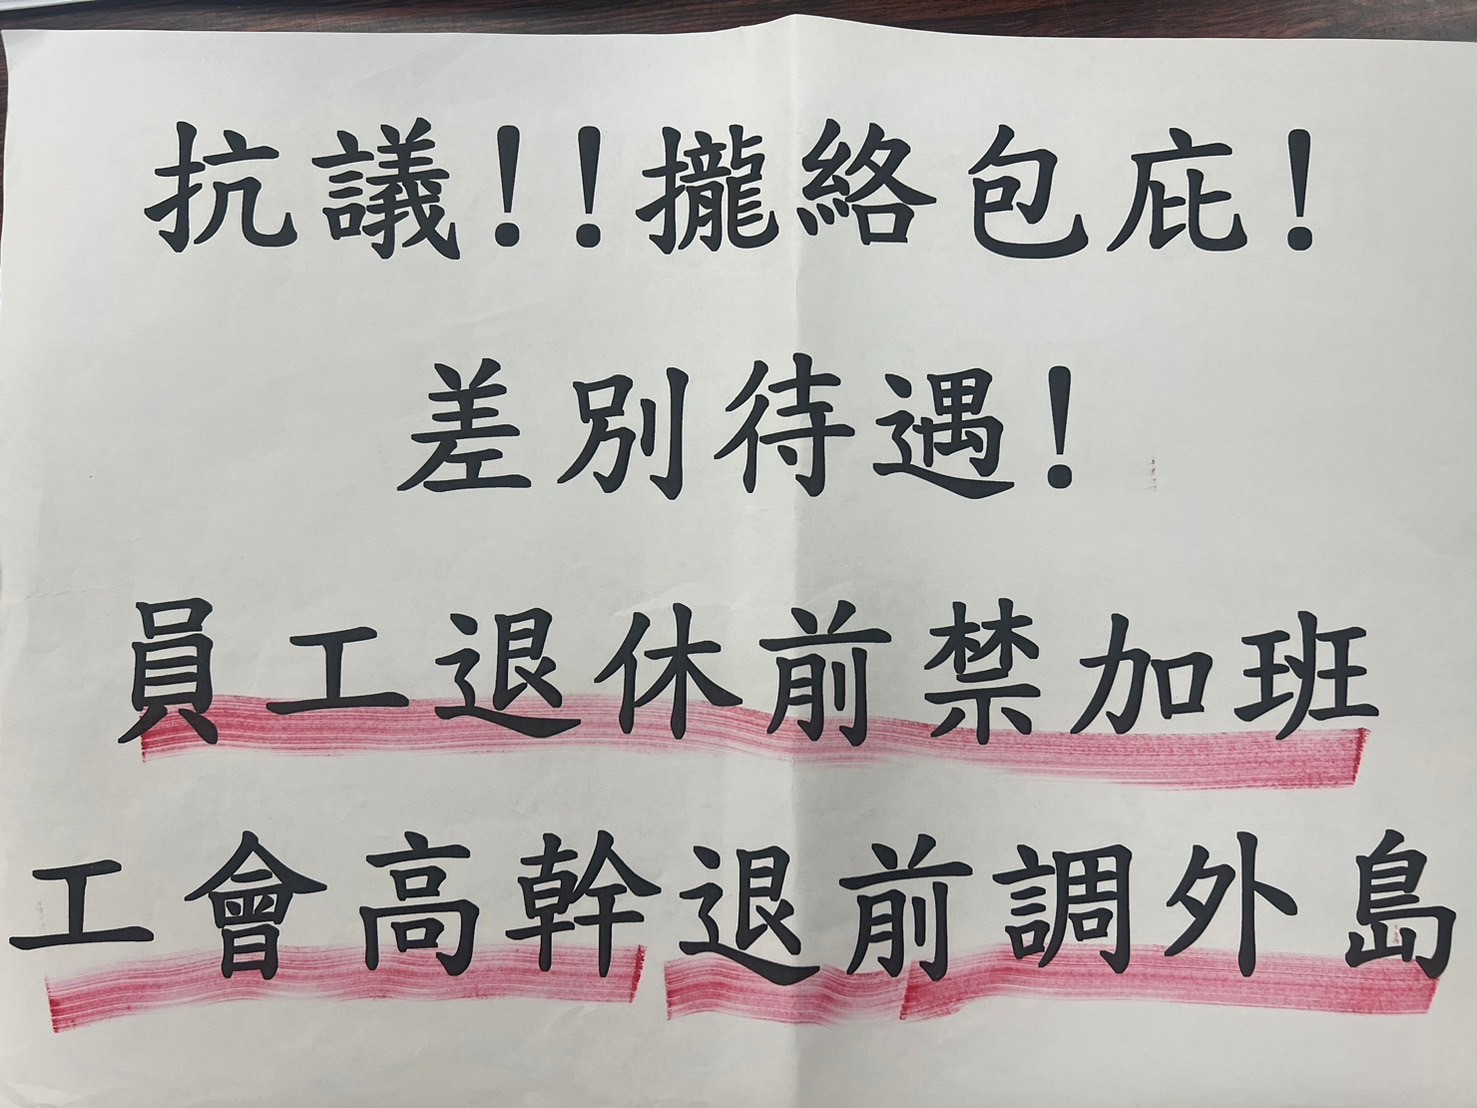 抗議!!攏絡包庇!
差別待遇!
員工退休前禁加班
工會高幹退前調外島